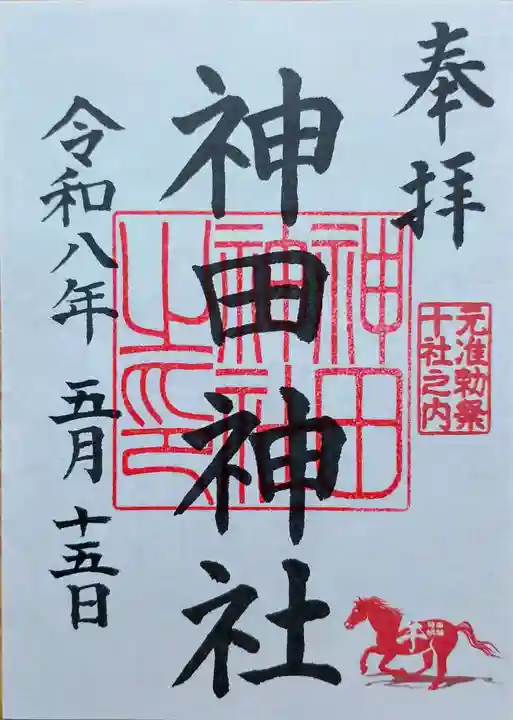 奉拝
元准勅祭
十社之内
神田神社
神田
神社
之印
令和八年 五月 十五日
午